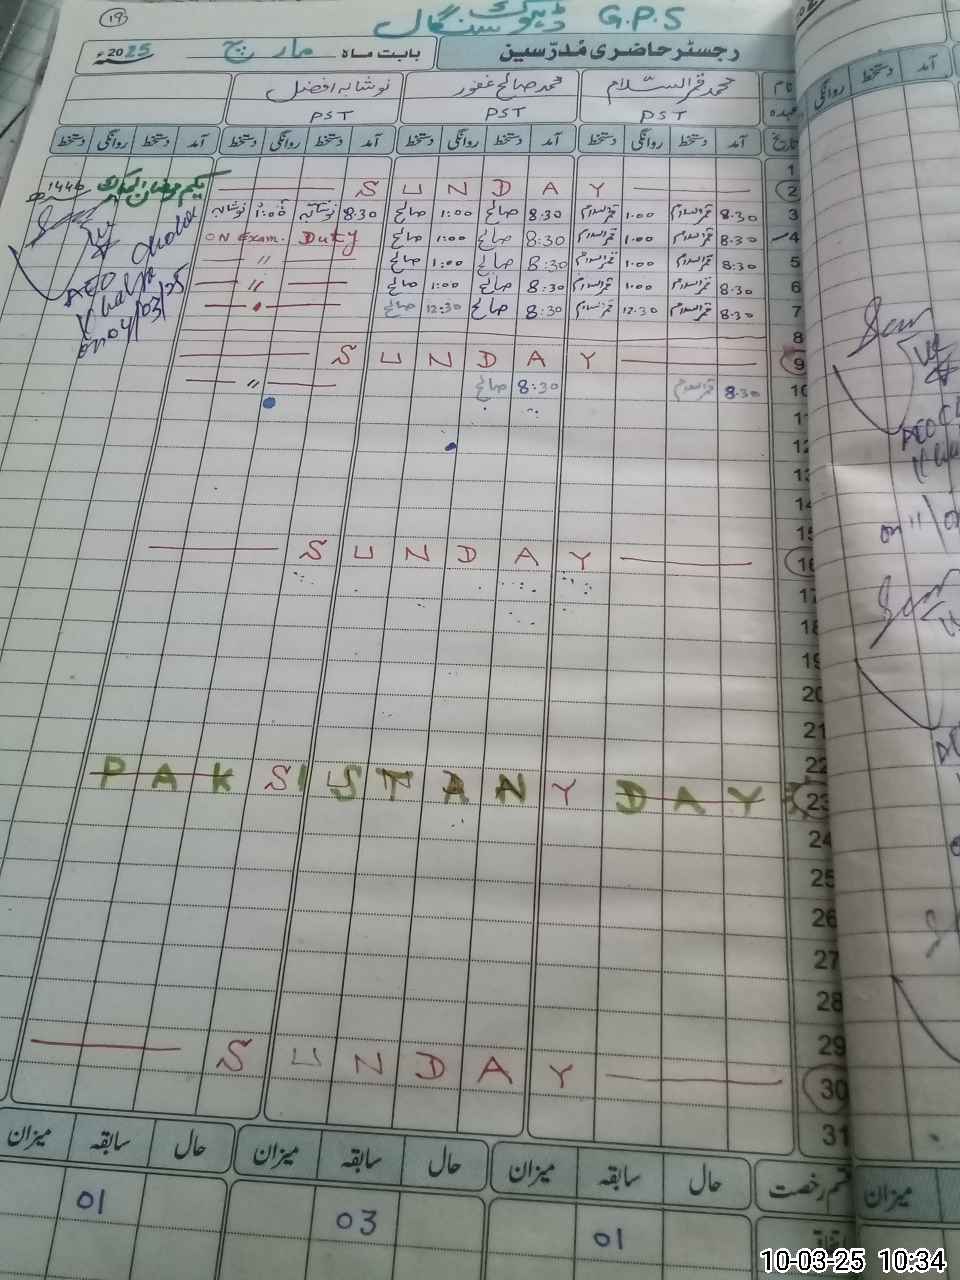 19
G.P.S ڈہوک سنگال
رجسٹر حاضری مُدرّسین بابت ماہ مارچ 2025ء
نام محمد قمر السلام محمد صالح غفور نوشابہ افضل
عہدہ PST PST PST
تاریخ آمد دستخط روانگی دستخط آمد دستخط روانگی دستخط آمد دستخط روانگی دستخط آمد دستخط روانگی دستخط
1
2 SUNDAY یکم رمضان المبارک 1446ھ
3 8.30 قمر السلام 1.00 قمر السلام 8.30 صالح 1:00 صالح 8.30 نوشابہ 1:00 نوشابہ
4 8.30 قمر السلام 1.00 قمر السلام 8:30 صالح 1:00 صالح ON Exam. Duty
5 8:30 قمر السلام 1.00 قمر السلام 8:30 صالح 1:00 صالح "
6 8:30 قمر السلام 1.00 قمر السلام 8:30 صالح 1:00 صالح "
7 8:30 قمر السلام 12.30 قمر السلام 8:30 صالح 12:30 صالح "
8
9 SUNDAY
10 8.30 قمر السلام 8:30 صالح "
AEO
on 04/03/25
11
12
13
14
15
16 SUNDAY
17
18
19
20
21
22
23 SUNDAY PAKISTAN DAY
24
25
26
27
28
29
30 SUNDAY
31
قسم رخصت حال سابقہ میزان حال سابقہ میزان حال سابقہ میزان
01 03 01
آمد دستخط روانگی
AEO
on 11
میزان
10-03-25 10:34